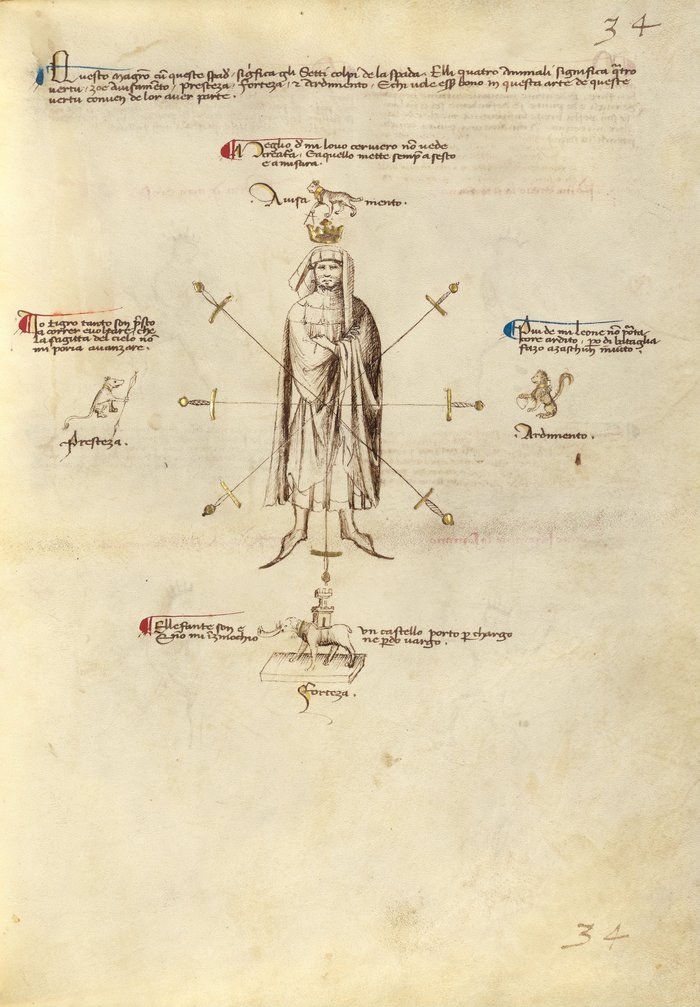 34
Questo Magistro cum queste spade significa gli Setti colpi de la spada. Elli quatro animali significa quatro
vertu, zoe avisamento, Presteza, Forteza, & Ardimento. E chi vole esser bono in questa arte de queste
vertu conven de lor aver parte.
Meglio de mi lovo cerviero non vede
creatura. E aquello mette sempre a sesto
e a misura.
Avisa mento.
Yo tigro tanto son presto
a correr e voltare, che
la sagitta del cielo non
mi poria avanzare.
Più de mi leone non porta
core ardito, però di bataglia
fazo a zaschun invito.
Presteza.
Ardimento.
Ellefante son e
uno
un castello porto per chargo
ne perdo vargo.
Forteza.
34